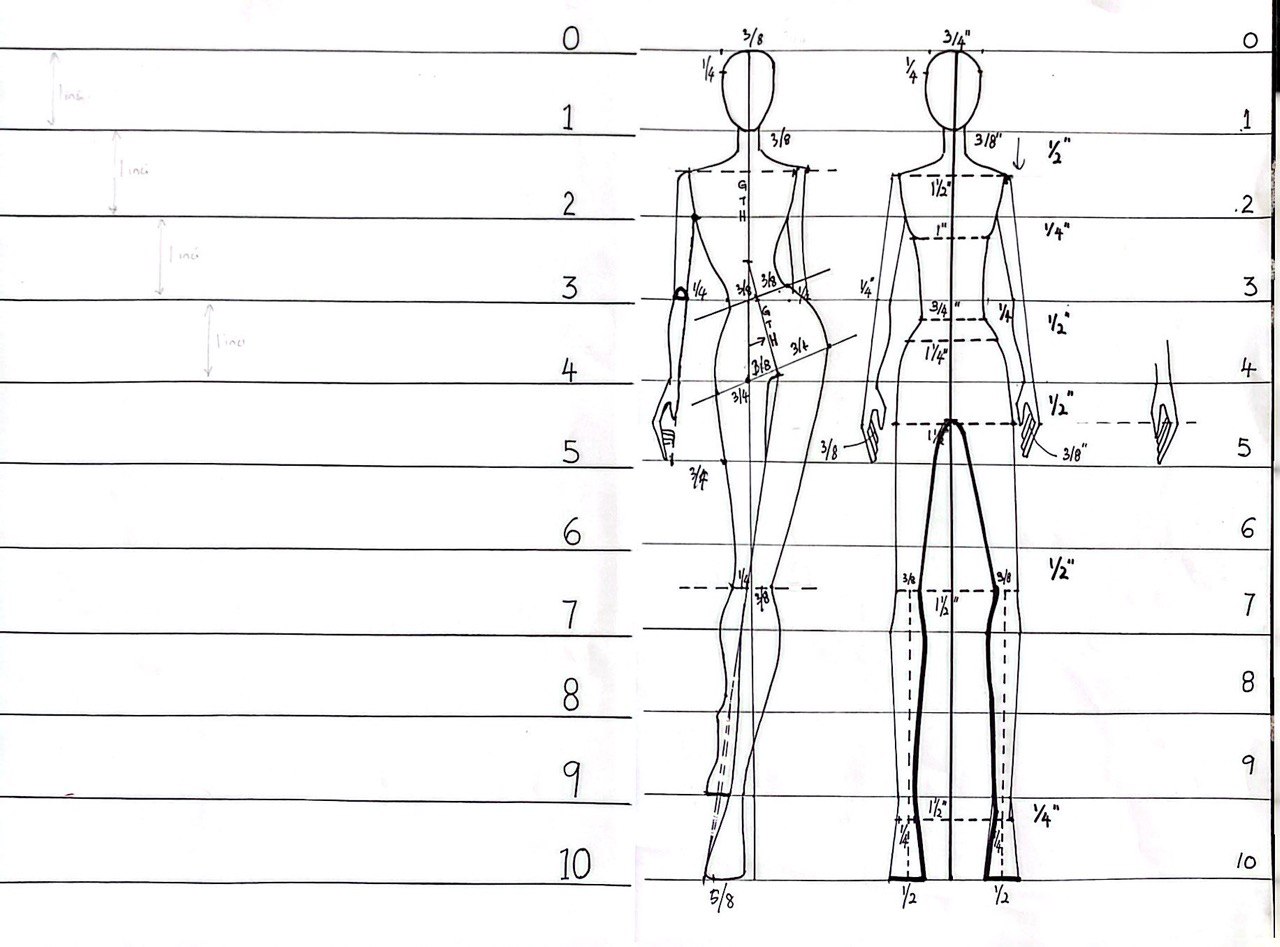 0
1 inc
1
1 inc
2
1 inc
3
1 inc
4
5
6
7
8
9
10
3/8
1/4
3/8
G
T
H
1/4
3/8
3/8
1/4
G
T
H
3/8
3/4
3/4
3/4
1/4
3/8
5/8
3/4"
1/4
3/8"
1/2"
1 1/2"
1"
1/4"
1/4"
3/4"
1/4
1/2"
1 1/4"
1/2"
3/8
3/8"
3/8
3/8
1/2"
1 1/2"
1 1/2"
1/4"
1/4
1/4
1/2
1/2
0
1
2
3
4
5
6
7
8
9
10